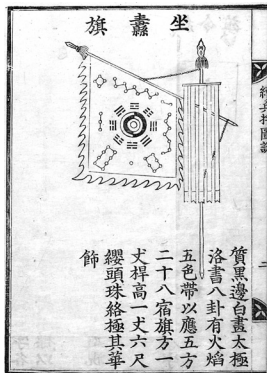 坐纛旗
質黑邊白畫太極
洛書八卦有火焰
五色帶以應五方
二十八宿旗方一
丈桿高一丈六尺
纓頭珠絡極其華
飾